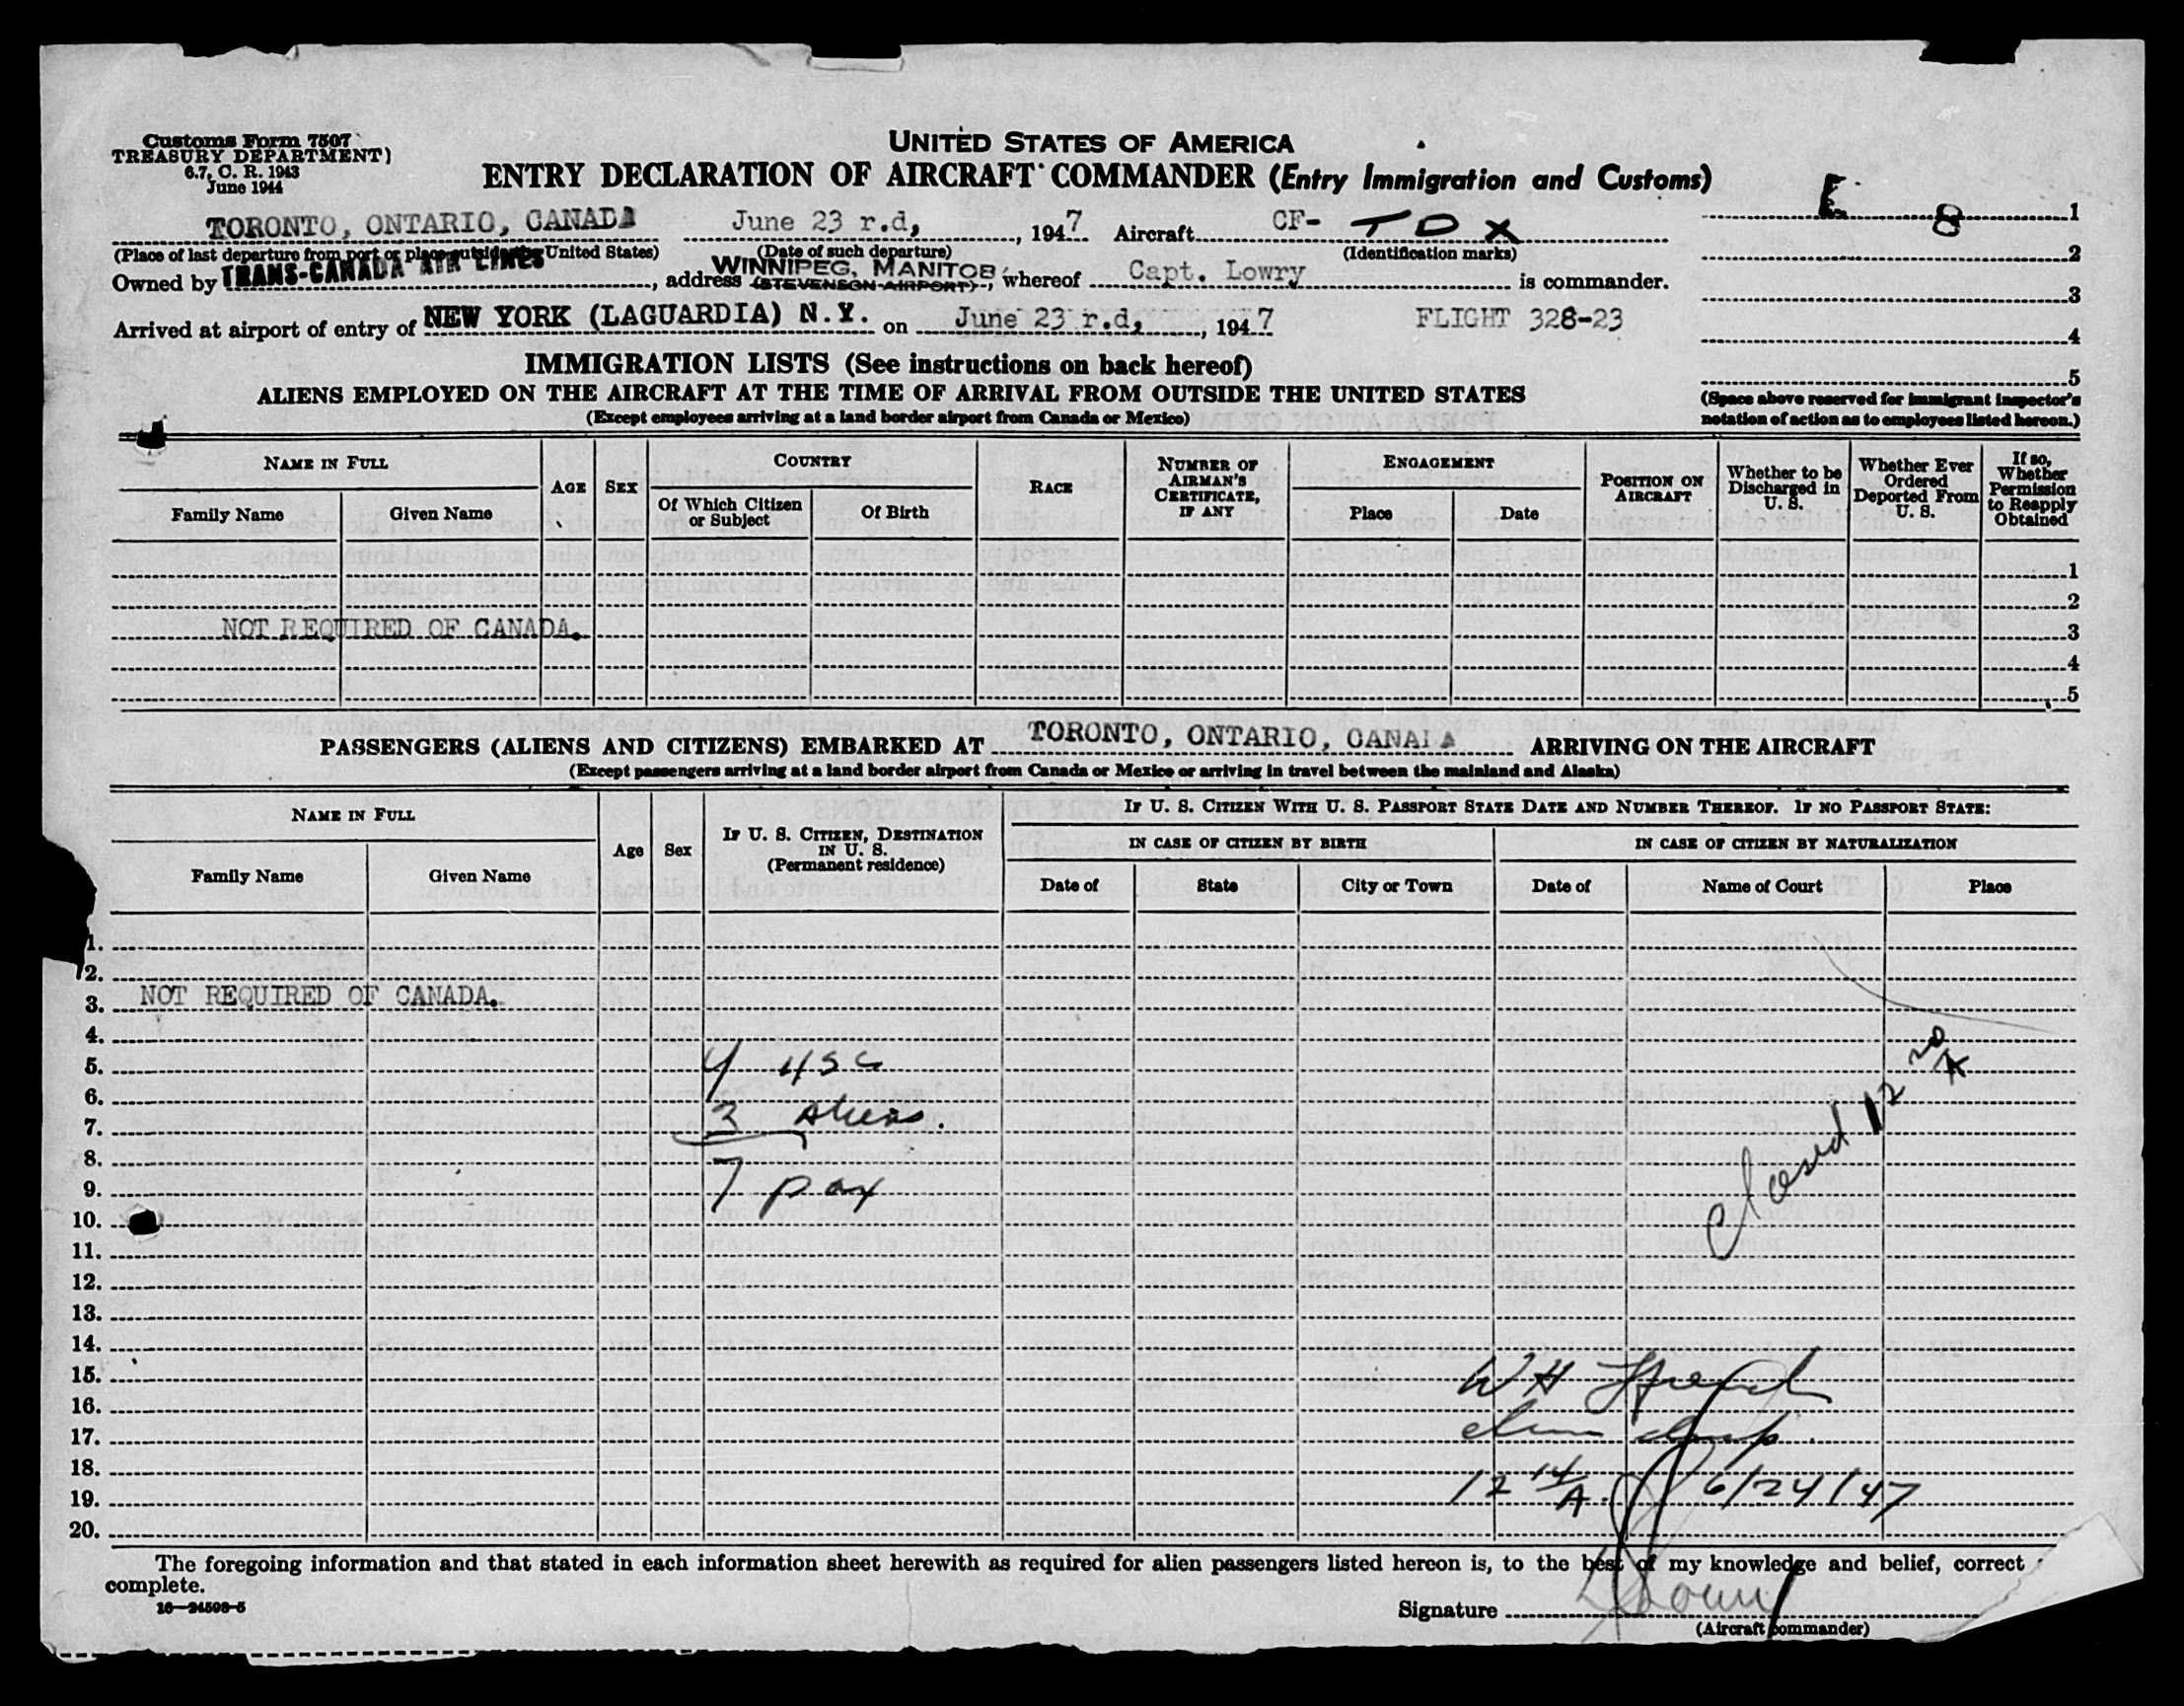 Customs Form 7507
TREASURY DEPARTMENT)
6.7, C. R. 1943
June 1944
UNITED STATES OF AMERICA
ENTRY DECLARATION OF AIRCRAFT COMMANDER (Entry Immigration and Customs)
E. 8 1
TORONTO, ONTARIO, CANADA June 23 r.d, , 1947 Aircraft CF- TDX
(Place of last departure from port or place outside the United States) (Date of such departure) (Identification marks)
2
Owned by TRANS-CANADA AIR LINES , address WINNIPEG, MANITOB (STEVENSON AIRPORT) , whereof Capt. Lowry is commander.
3
Arrived at airport of entry of NEW YORK (LAGUARDIA) N.Y. on June 23 r.d, , 1947 FLIGHT 328-23
4
IMMIGRATION LISTS (See instructions on back hereof)
5
ALIENS EMPLOYED ON THE AIRCRAFT AT THE TIME OF ARRIVAL FROM OUTSIDE THE UNITED STATES
(Except employees arriving at a land border airport from Canada or Mexico)
(Space above reserved for immigrant inspector's
notation of action as to employees listed hereon.)
NAME IN FULL
Family Name Given Name
AGE SEX
COUNTRY
Of Which Citizen or Subject Of Birth
RACE
NUMBER OF AIRMAN'S CERTIFICATE, IF ANY
ENGAGEMENT
Place Date
POSITION ON AIRCRAFT
Whether to be Discharged in U. S.
Whether Ever Ordered Deported From U. S.
If so, Whether Permission to Reapply Obtained
1
2
NOT REQUIRED OF CANADA. 3
4
5
PASSENGERS (ALIENS AND CITIZENS) EMBARKED AT TORONTO, ONTARIO, CANADA ARRIVING ON THE AIRCRAFT
(Except passengers arriving at a land border airport from Canada or Mexico or arriving in travel between the mainland and Alaska)
NAME IN FULL
Family Name Given Name
Age Sex
IF U. S. CITIZEN, DESTINATION IN U. S.
(Permanent residence)
IF U. S. CITIZEN WITH U. S. PASSPORT STATE DATE AND NUMBER THEREOF. IF NO PASSPORT STATE:
IN CASE OF CITIZEN BY BIRTH IN CASE OF CITIZEN BY NATURALIZATION
Date of State City or Town Date of Name of Court Place
1.
2.
3. NOT REQUIRED OF CANADA.
4.
5. 4 USC
6.
7. 3 Aliens.
8.
9. 7 pax
Closed 12 20/A
10.
11.
12.
13.
14.
15. W H
16.
17.
18.
19. 12 14/A. 6/24/47
20.
The foregoing information and that stated in each information sheet herewith as required for alien passengers listed hereon is, to the best of my knowledge and belief, correct
complete.
16—24598-5
Signature
(Aircraft commander)